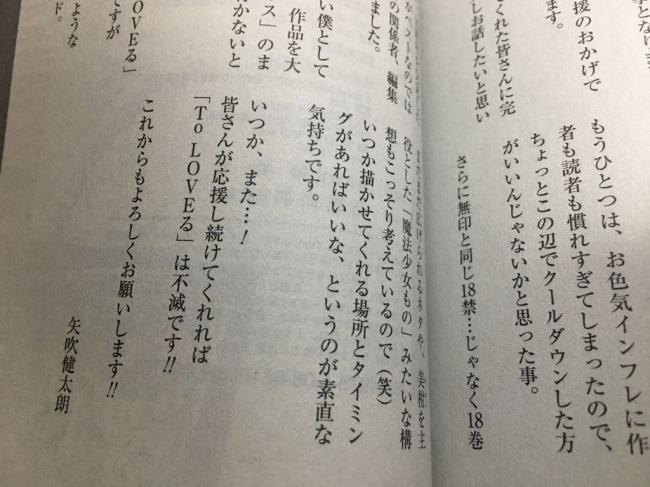 援のおかげで
ます。
くれた皆さんに完
しお話したいと思い
もうひとつは、お色気インフレに作
者も読者も慣れすぎてしまったので、
ちょっとこの辺でクールダウンした方
がいいんじゃないかと思った事。
さらに無印と同じ18禁…じゃなく18巻
なベストなのでは
の関係者、編集
ました。
い僕として
作品を大
ス」のま
かないと
OVEる」
ですが
ような
ド。
まだまだ広げられるネタや、美柑を主
役とした「魔法少女もの」みたいな構
想もこっそり考えているので(笑)
いつか描かせてくれる場所とタイミン
グがあればいいな、というのが素直な
気持ちです。
いつか、また…!
皆さんが応援し続けてくれれば
「To LOVEる」は不滅です!!
これからもよろしくお願いします!!
矢吹健太朗